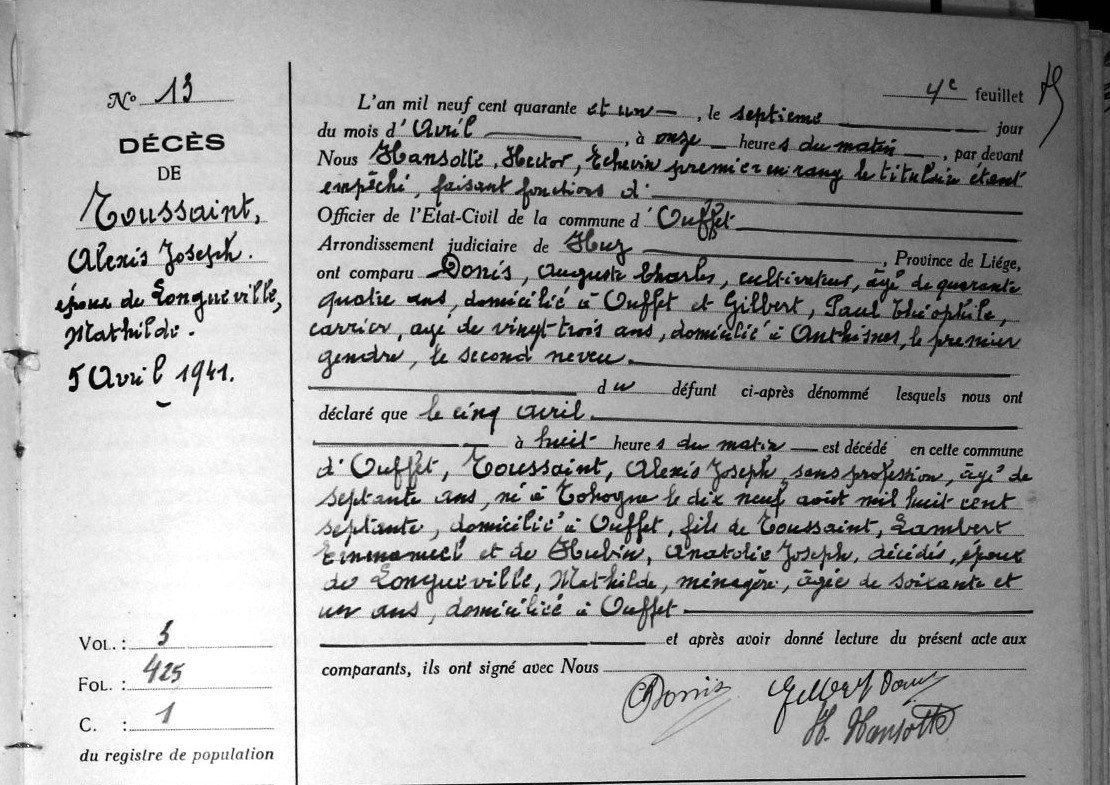 4e feuillet
No 13
DÉCÈS
DE
Toussaint,
Alexis Joseph.
époux de Longueville,
Mathilde.
5 Avril 1941.
VOL. : 5
FOL. : 425
C. : 1
du registre de population
L'an mil neuf cent quarante et un, le septième jour
du mois d'Avril, à onze heures du matin, par devant
Nous Hansotte, Hector, Echevin premier en rang le titulaire étant
empêché, faisant fonctions d'
Officier de l'Etat-Civil de la commune d'Ouffet
Arrondissement judiciaire de Huy, Province de Liége,
ont comparu Donis, Auguste Charles, cultivateur, âgé de quarante
quatre ans, domicilié à Ouffet et Gilbert, Paul Théophile,
carrier, age de vingt-trois ans, domicilié à Anthisnes, le premier
gendre, le second neveu.
du défunt ci-après dénommé lesquels nous ont
déclaré que le cinq avril.
à huit heures du matin est décédé en cette commune
d'Ouffet, Toussaint, Alexis Joseph, sans profession, âgé de
septante ans, né à Tohogne le dix neuf août mil huit cent
septante, domicilié à Ouffet, fils de Toussaint, Lambert
et de Hubin, Anatolie Joseph, décédés, époux
de Longueville, Mathilde, ménagère, âgée de soixante et
un ans, domicilicé à Ouffet
et après avoir donné lecture du présent acte aux
comparants, ils ont signé avec Nous
Donis Gilbert
H. Hansotte